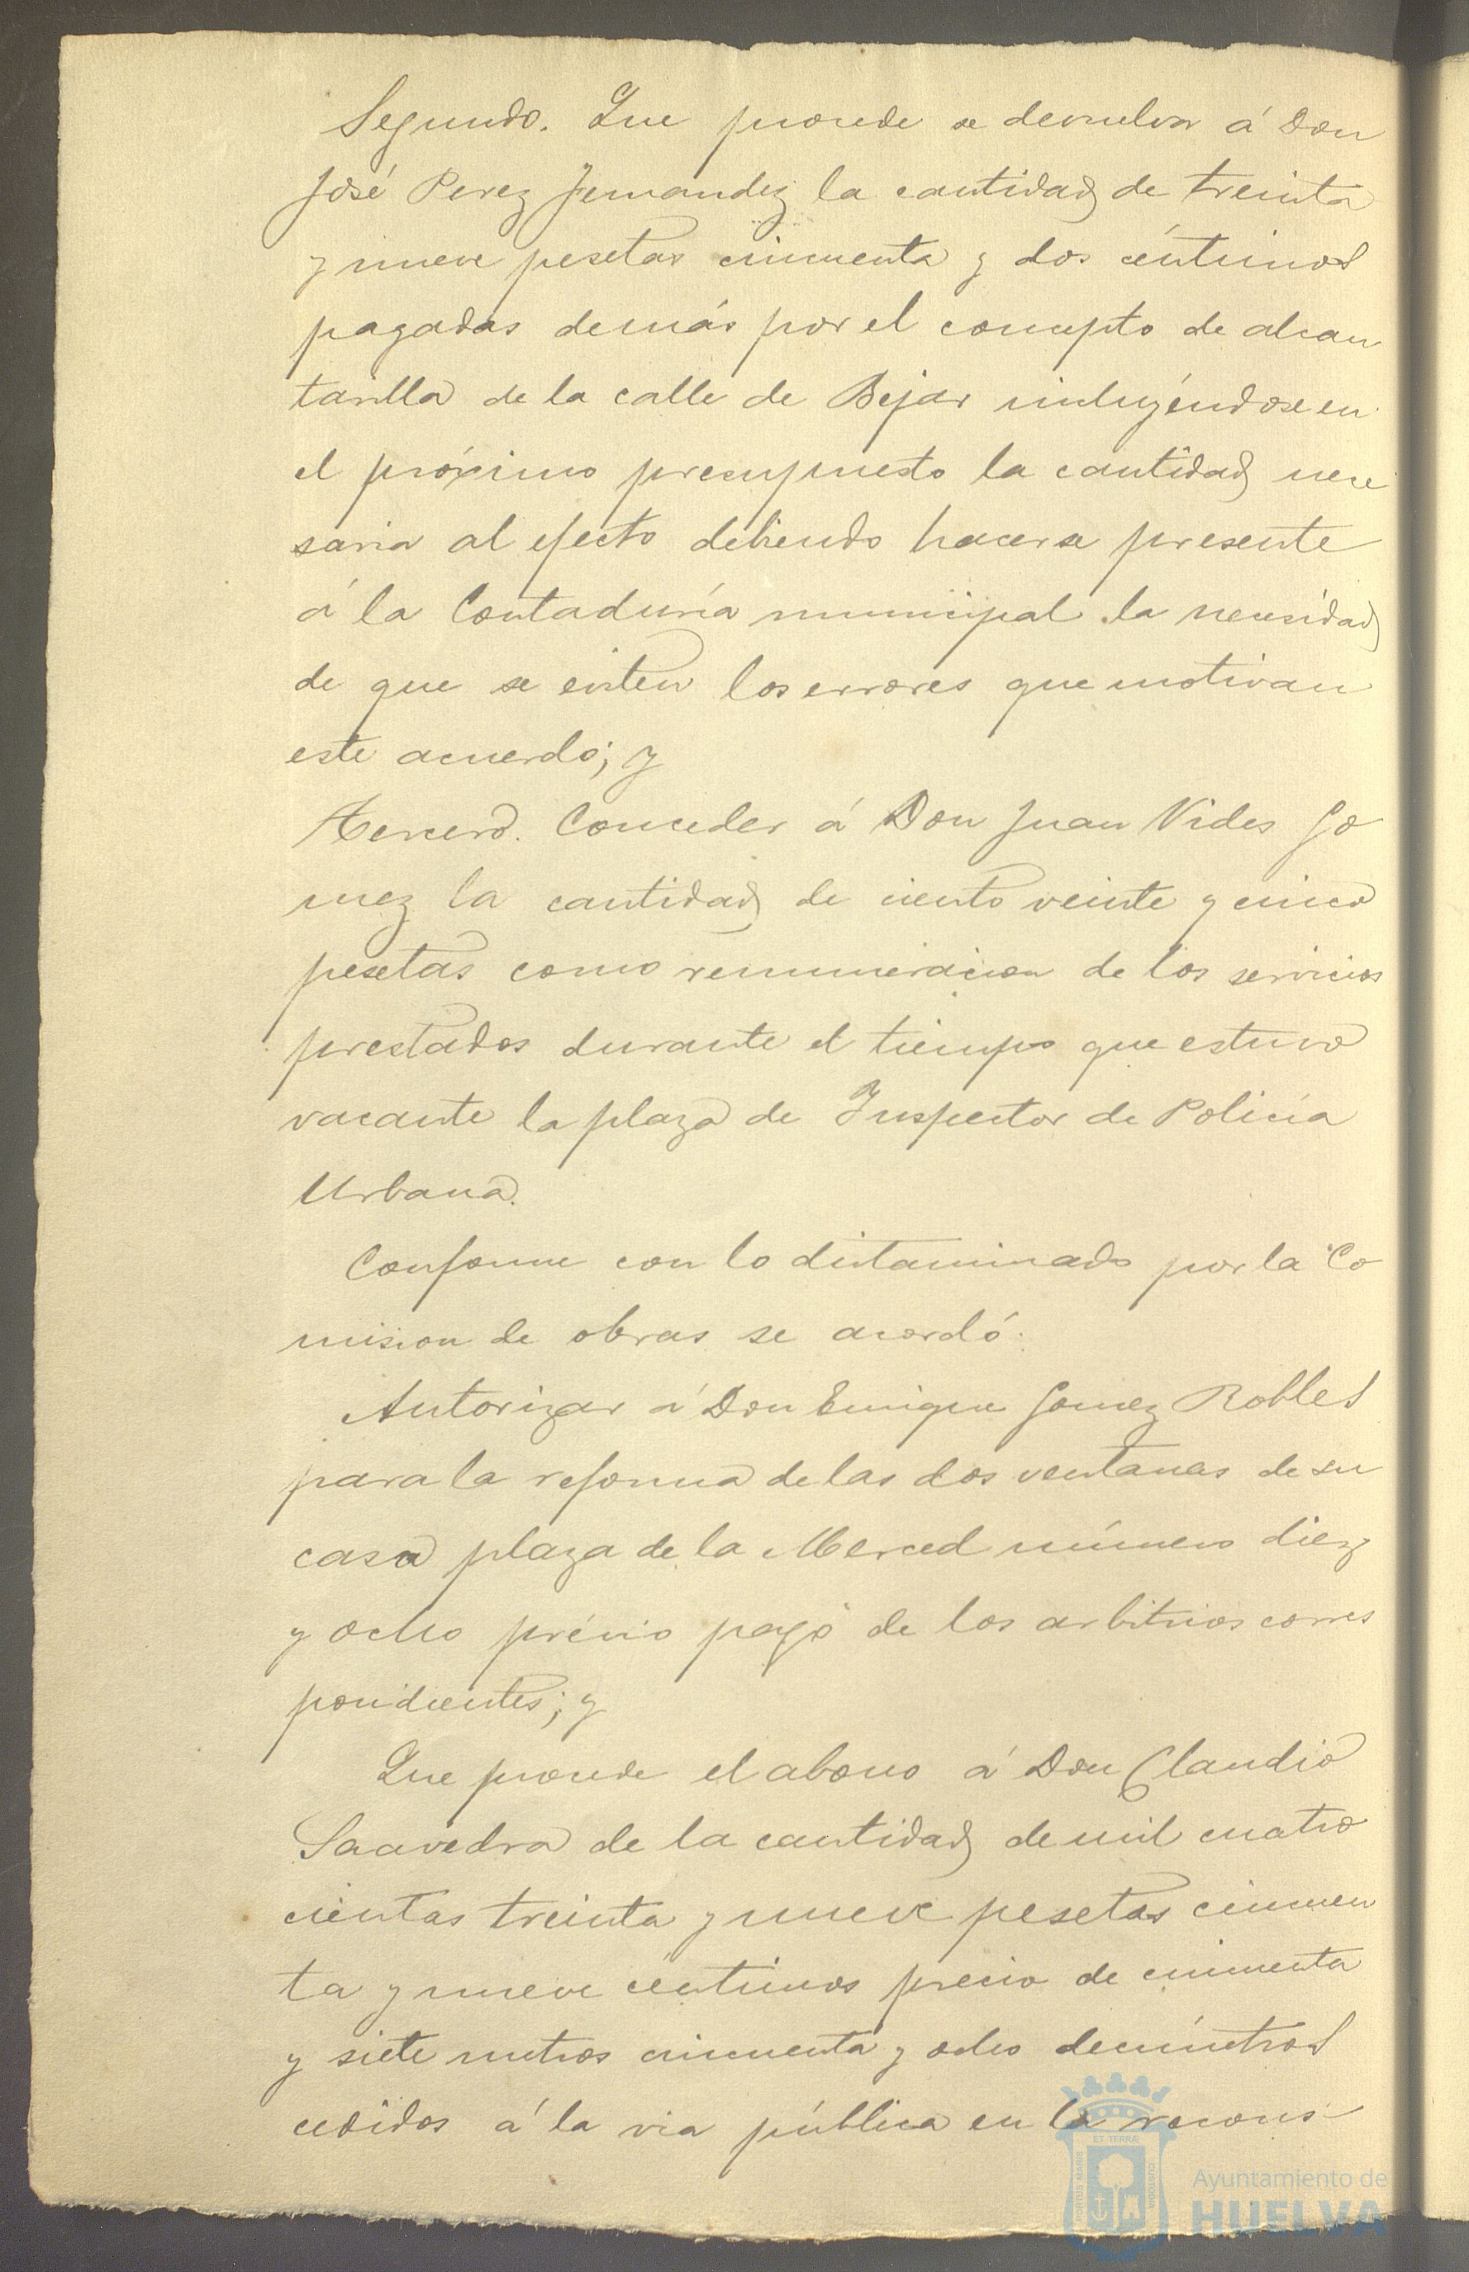 Segundo. Que procede se devuelva á Don
José Perez Fernandez la cantidad de treinta
y nueve pesetas cincuenta y dos céntimos
pagadas demás por el concepto de alcan
tarilla de la calle de Bejar incluyéndose en
el próximo presupuesto la cantidad nece
saria al efecto debiendo hacerse presente
á la Contaduría municipal la necesidad
de que se eviten los errores que motivan
este acuerdo; y
Tercero. Conceder á Don Juan Vides Go
mez la cantidad de ciento veinte y cinco
pesetas como remuneracion de los servicios
prestados durante el tiempo que estuvo
vacante la plaza de Inspector de Policía
Urbana.
Conforme con lo dictaminado por la Co
mision de obras se acordó:
Autorizar á Don Enrique Gomez Robles
para la reforma de las dos ventanas de su
casa plaza de la Merced número diez
y ocho prévio pago de los arbitrios corres
pondientes; y
Que procede el abono á Don Claudio
Saavedra de la cantidad de mil cuatro
cientas treinta y nueve pesetas cincuen
ta y nueve céntimos precio de cincuenta
y siete metros cincuenta y ocho decímetros
cedidos á la via pública en la recons
ET TERRÆ
PORTUS MARIS
CUSTODIA
Ayuntamiento de
HUELVA